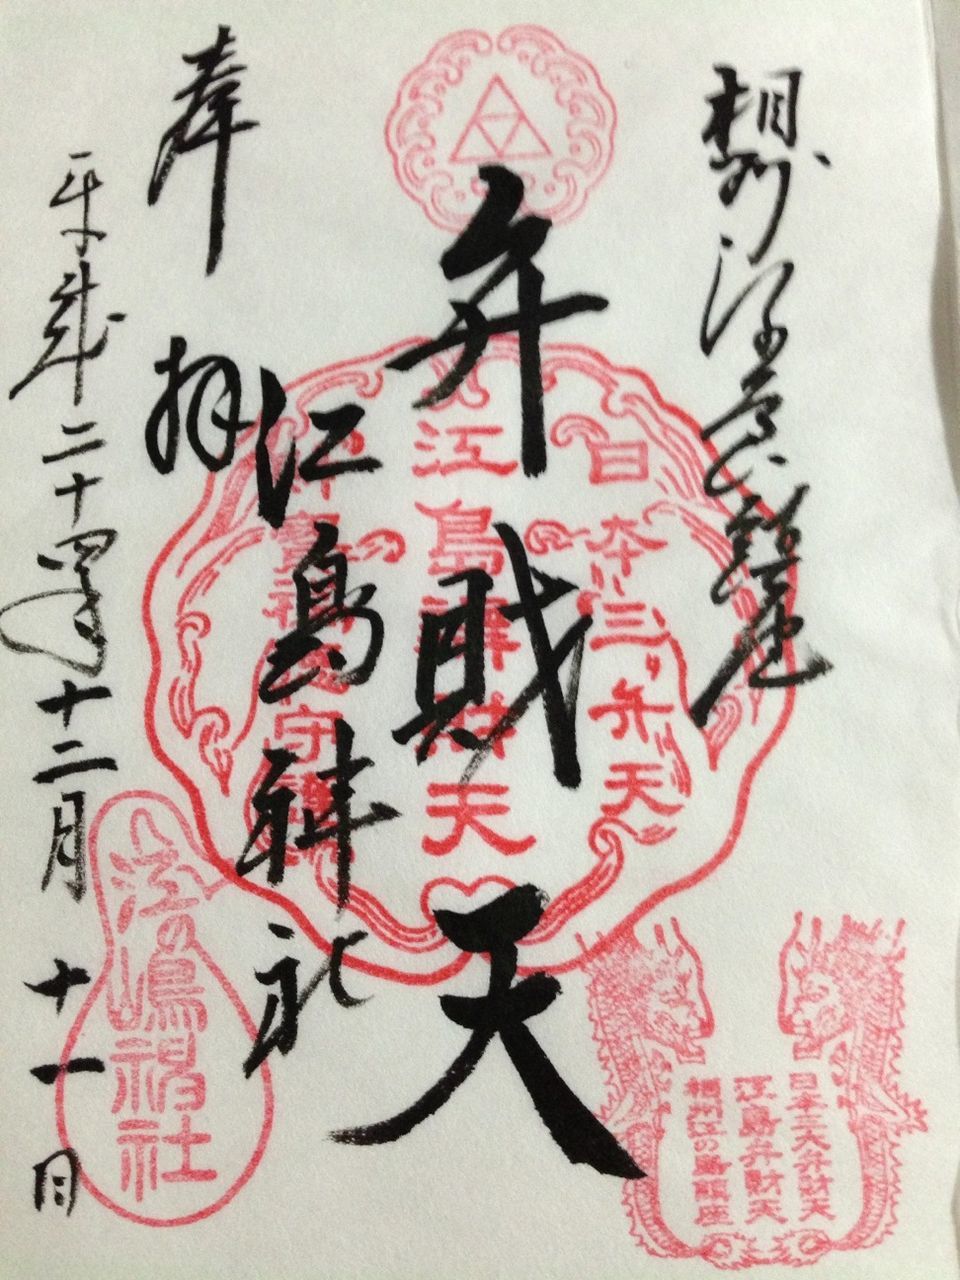 相州江の島鎮座
弁財天
江島神社
奉拝
平成二十四年十二月十一日
日本三弁天
江島辨財天
守護
江の嶋神社
日本三大弁財天
江島弁財天
相州江の島鎮座